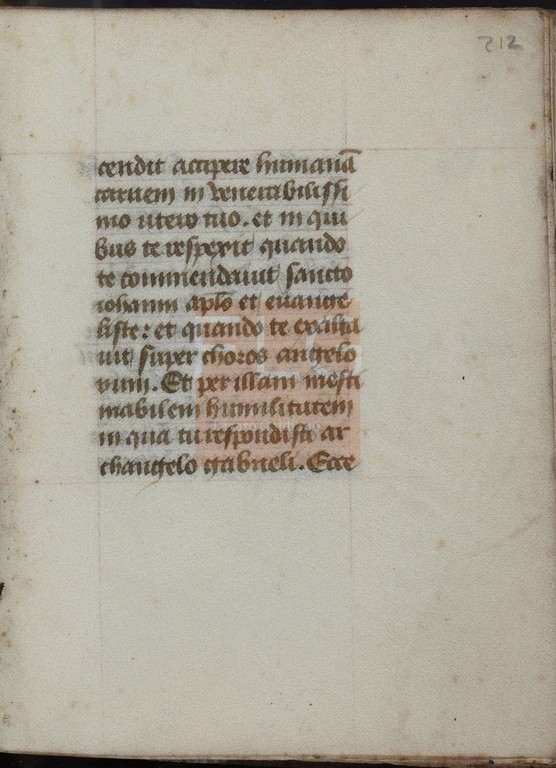 212
cendit accipere humanā
carnem in venerabilissi
mo utero tuo. et in qui
bus te respexit quando
te commendavit sancto
iohanni aplo et evange
liste: et quando te exalta
vit super choros angelo
rum. Et per illam inesti
mabilem humilitatem
in qua tu respondisti ar
changelo gabrieli. Ecce
FLG